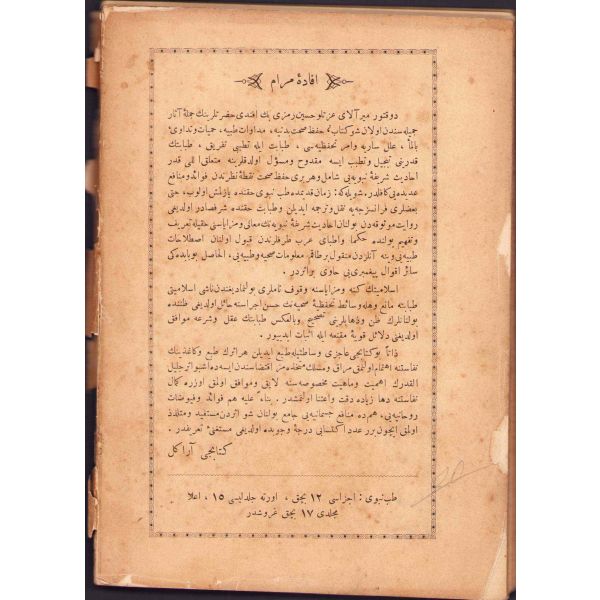 افادۀ مرام
دوقتور میرآلای عزتلو حسین رمزی بك افندی حضرتلرینك جملۀ آثار
جمیله سندن اولان شو کتاب حفظ صحت بدنیه ، مداوات طبیه ، حمیات وتداوی
بالماً ، علل ساریه وامر تحفظیه سی ، طبابت ایله تطبیبی تفریق ، طبابتك
قدرینی تبجیل وتطبب ایسه مقدوح ومسؤل اولدقلرینه متعلق اللی قدر
احادیث شریفۀ نبویه یی شامل وهربری حفظ صحت نقطۀ نظرندن فوائد ومنافع
عدیده یی کافلدر. شویله که: زمان قدیمده طب نبوی حقنده یازلمش اولوب، حتی
بعضلری فرانسزجه یه نقل وترجمه ایدیلن وطبابت حقنده شرفصادر اولدیغی
روایت موثوقه دن بولنان احادیث شریفۀ نبویه نك معانی ومزایاسنی حقیله تعریف
وتفهیم یولنده حکما واطبای عرب طرفلرندن قبول اولنان اصطلاحات
طبیه یی وینه آنلردن منقول برطاقم معلومات صحیه وطبیه یی، الحاصل بوبابده کی
سائر اقوال پیغمبری یی حاوی براثردر .
اسلامیتك کنه و مزایاسنه وقوف تاملری بولنمدیغندن ناشی اسلامیتی
طبابته مانع وهله وسائط تحفظیۀ صحیه نك حسن اجراسنه حائل اولدیغی ظننده
بولنانلرك ظن وذهابلرینی تصحیح وبالعکس طبابتك عقل وشرعه موافق
اولدیغنی دلائل قویۀ مقنعه ایله اثبات ایدییور .
ذاتاً بوکتابجی عاجزی وساطتیله طبع ایدیلن هراثرك طبع وکاغدینك
نفاستنه اهتمام اولنمق مراق ومسلك متخذه مز اقتضاسندن ایسه ده اشبو اثر جلیل
القدرك اهمیت وماهیت مخصوصه سنه لایق وموافق اولمق اوزره کمال
نفاستنه دها زیاده دقت واعتنا اولنمشدر . بناءً علیه هم فوائد وفیوضات
روحانیه یی ، هم ده منافع جسمانیه یی جامع بولنان شو اثردن مستفید ومتلذذ
اولمق ایچون برر عدد اکتسابی درجۀ وجوبده اولدیغی مستغنئ تعریفدر .
کتابجی آراکل
طب نبوی : اجزاسی ١٢ بچق ، اورته جلدلیسی ١٥ ، اعلا
مجلدی ١٧ بچق غروشدر